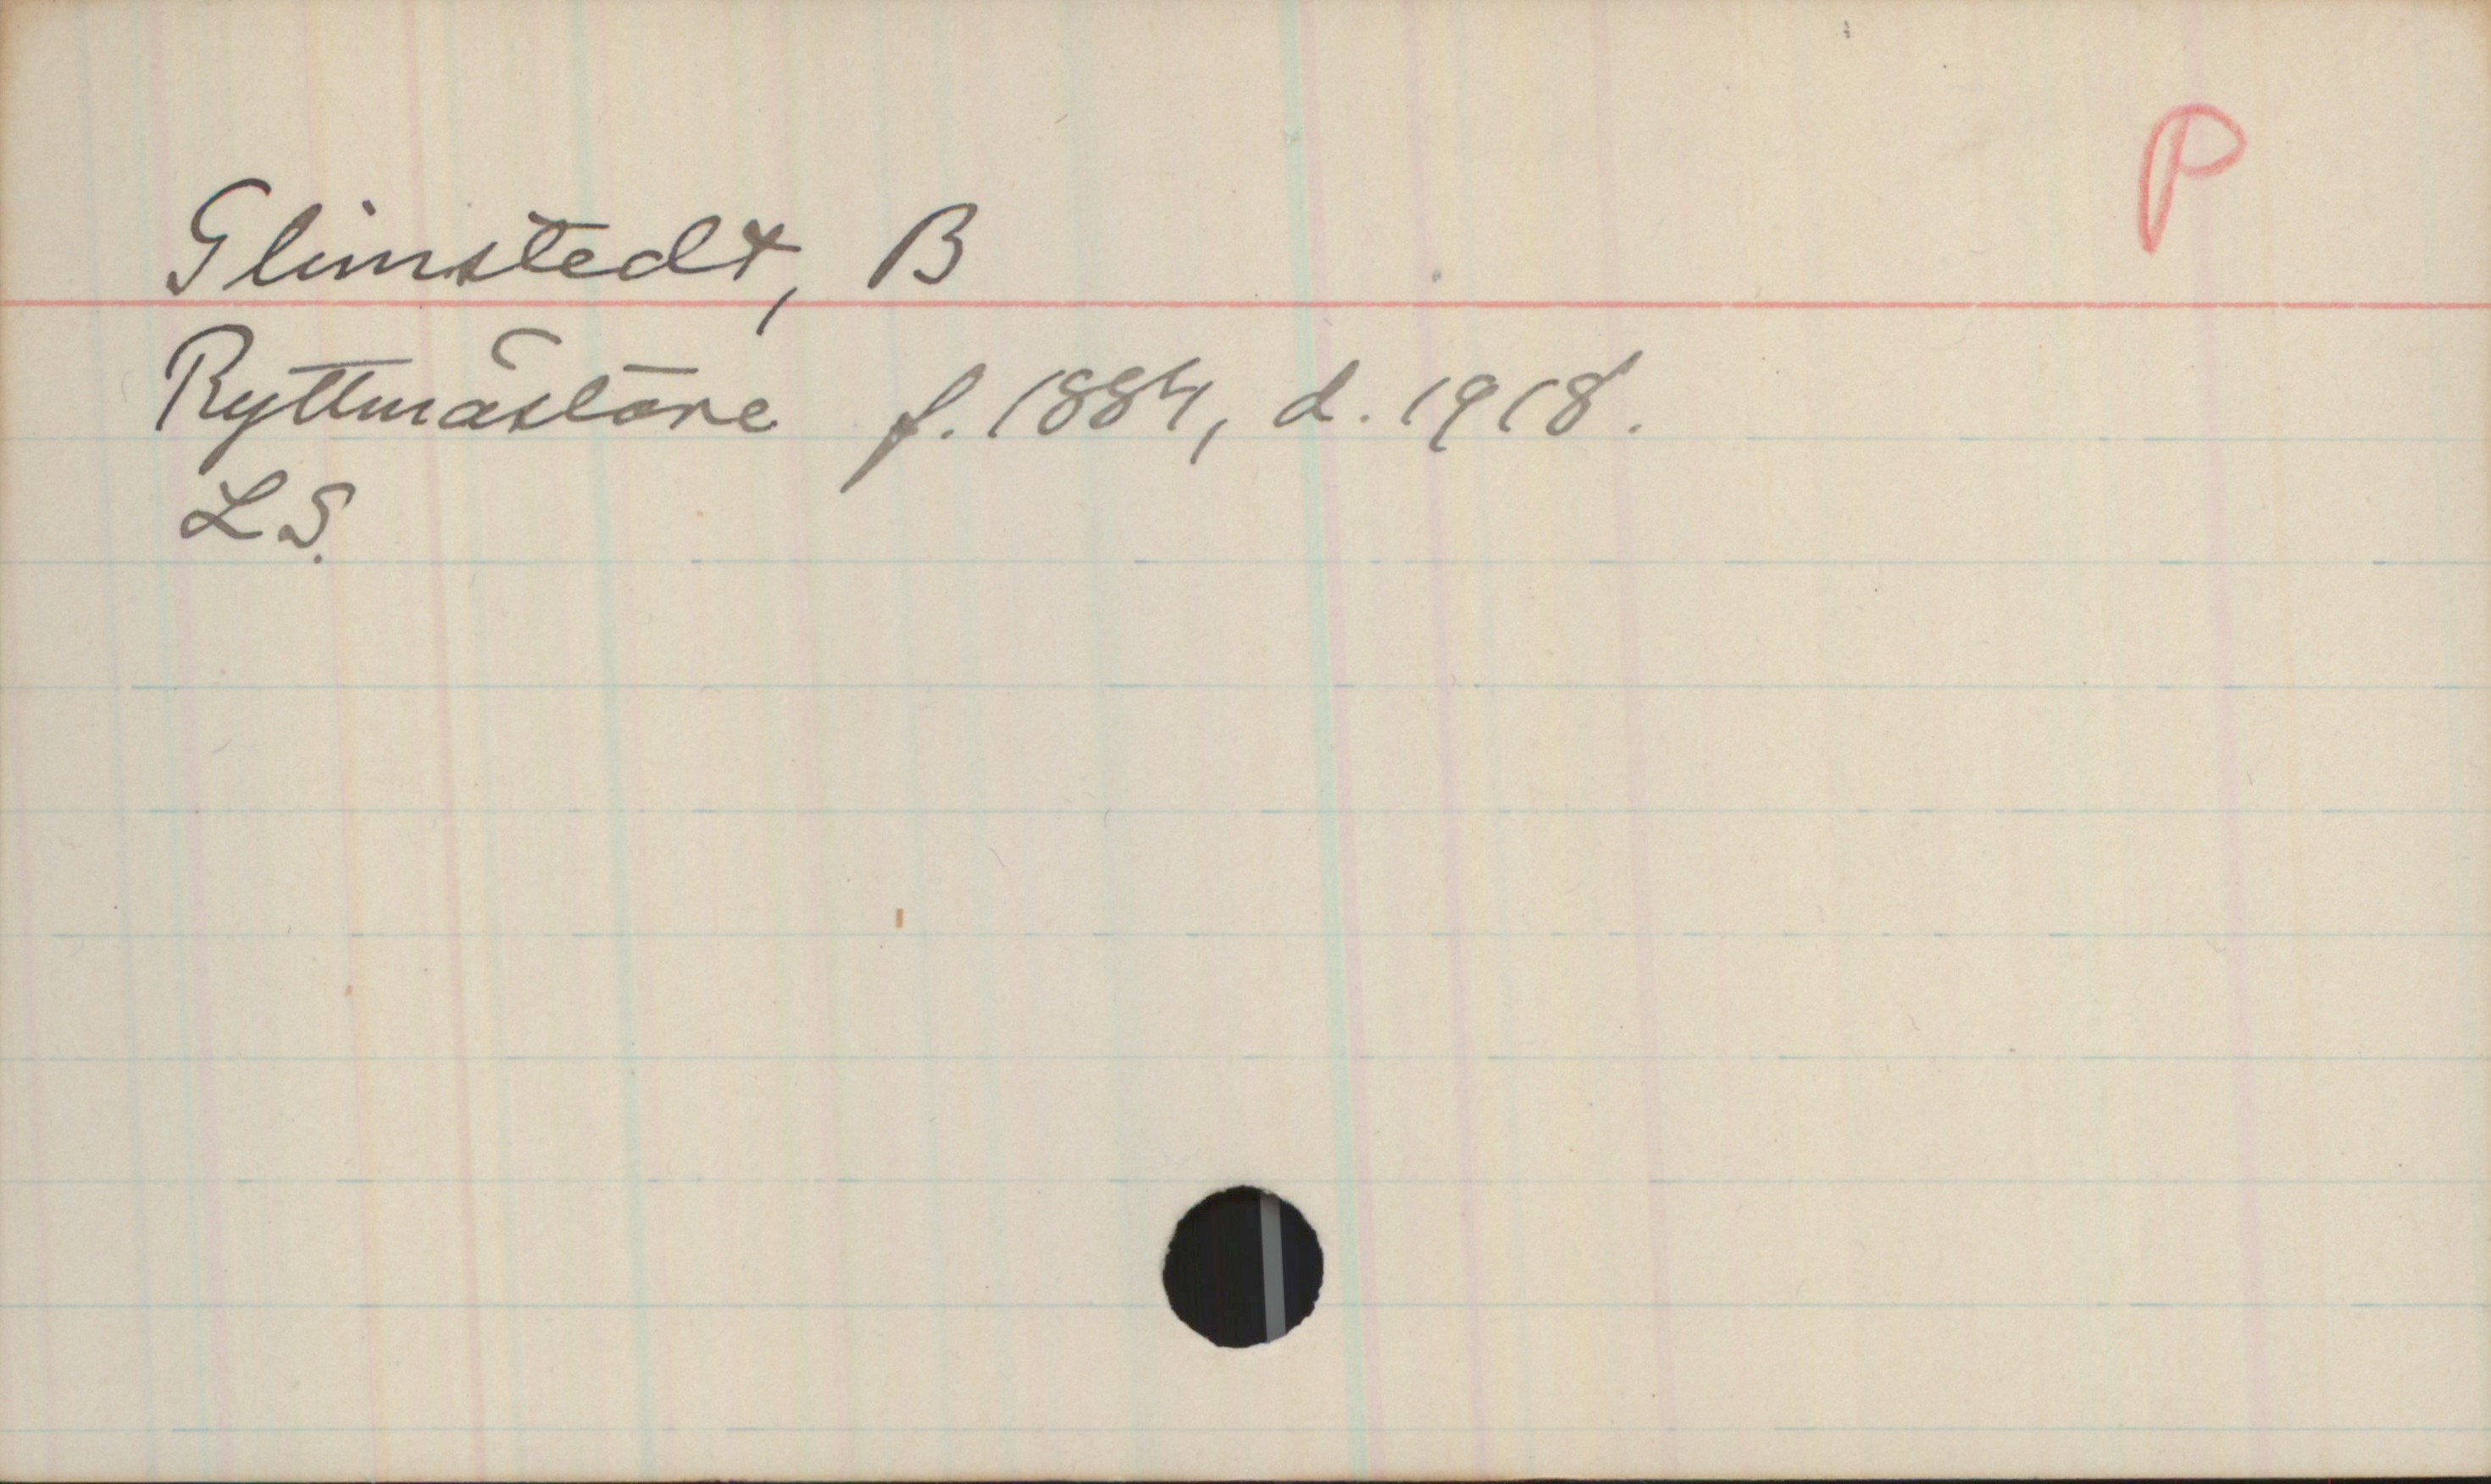 P
Glimstedt, B
Ryttmästare f. 1884, d. 1918.
L S.